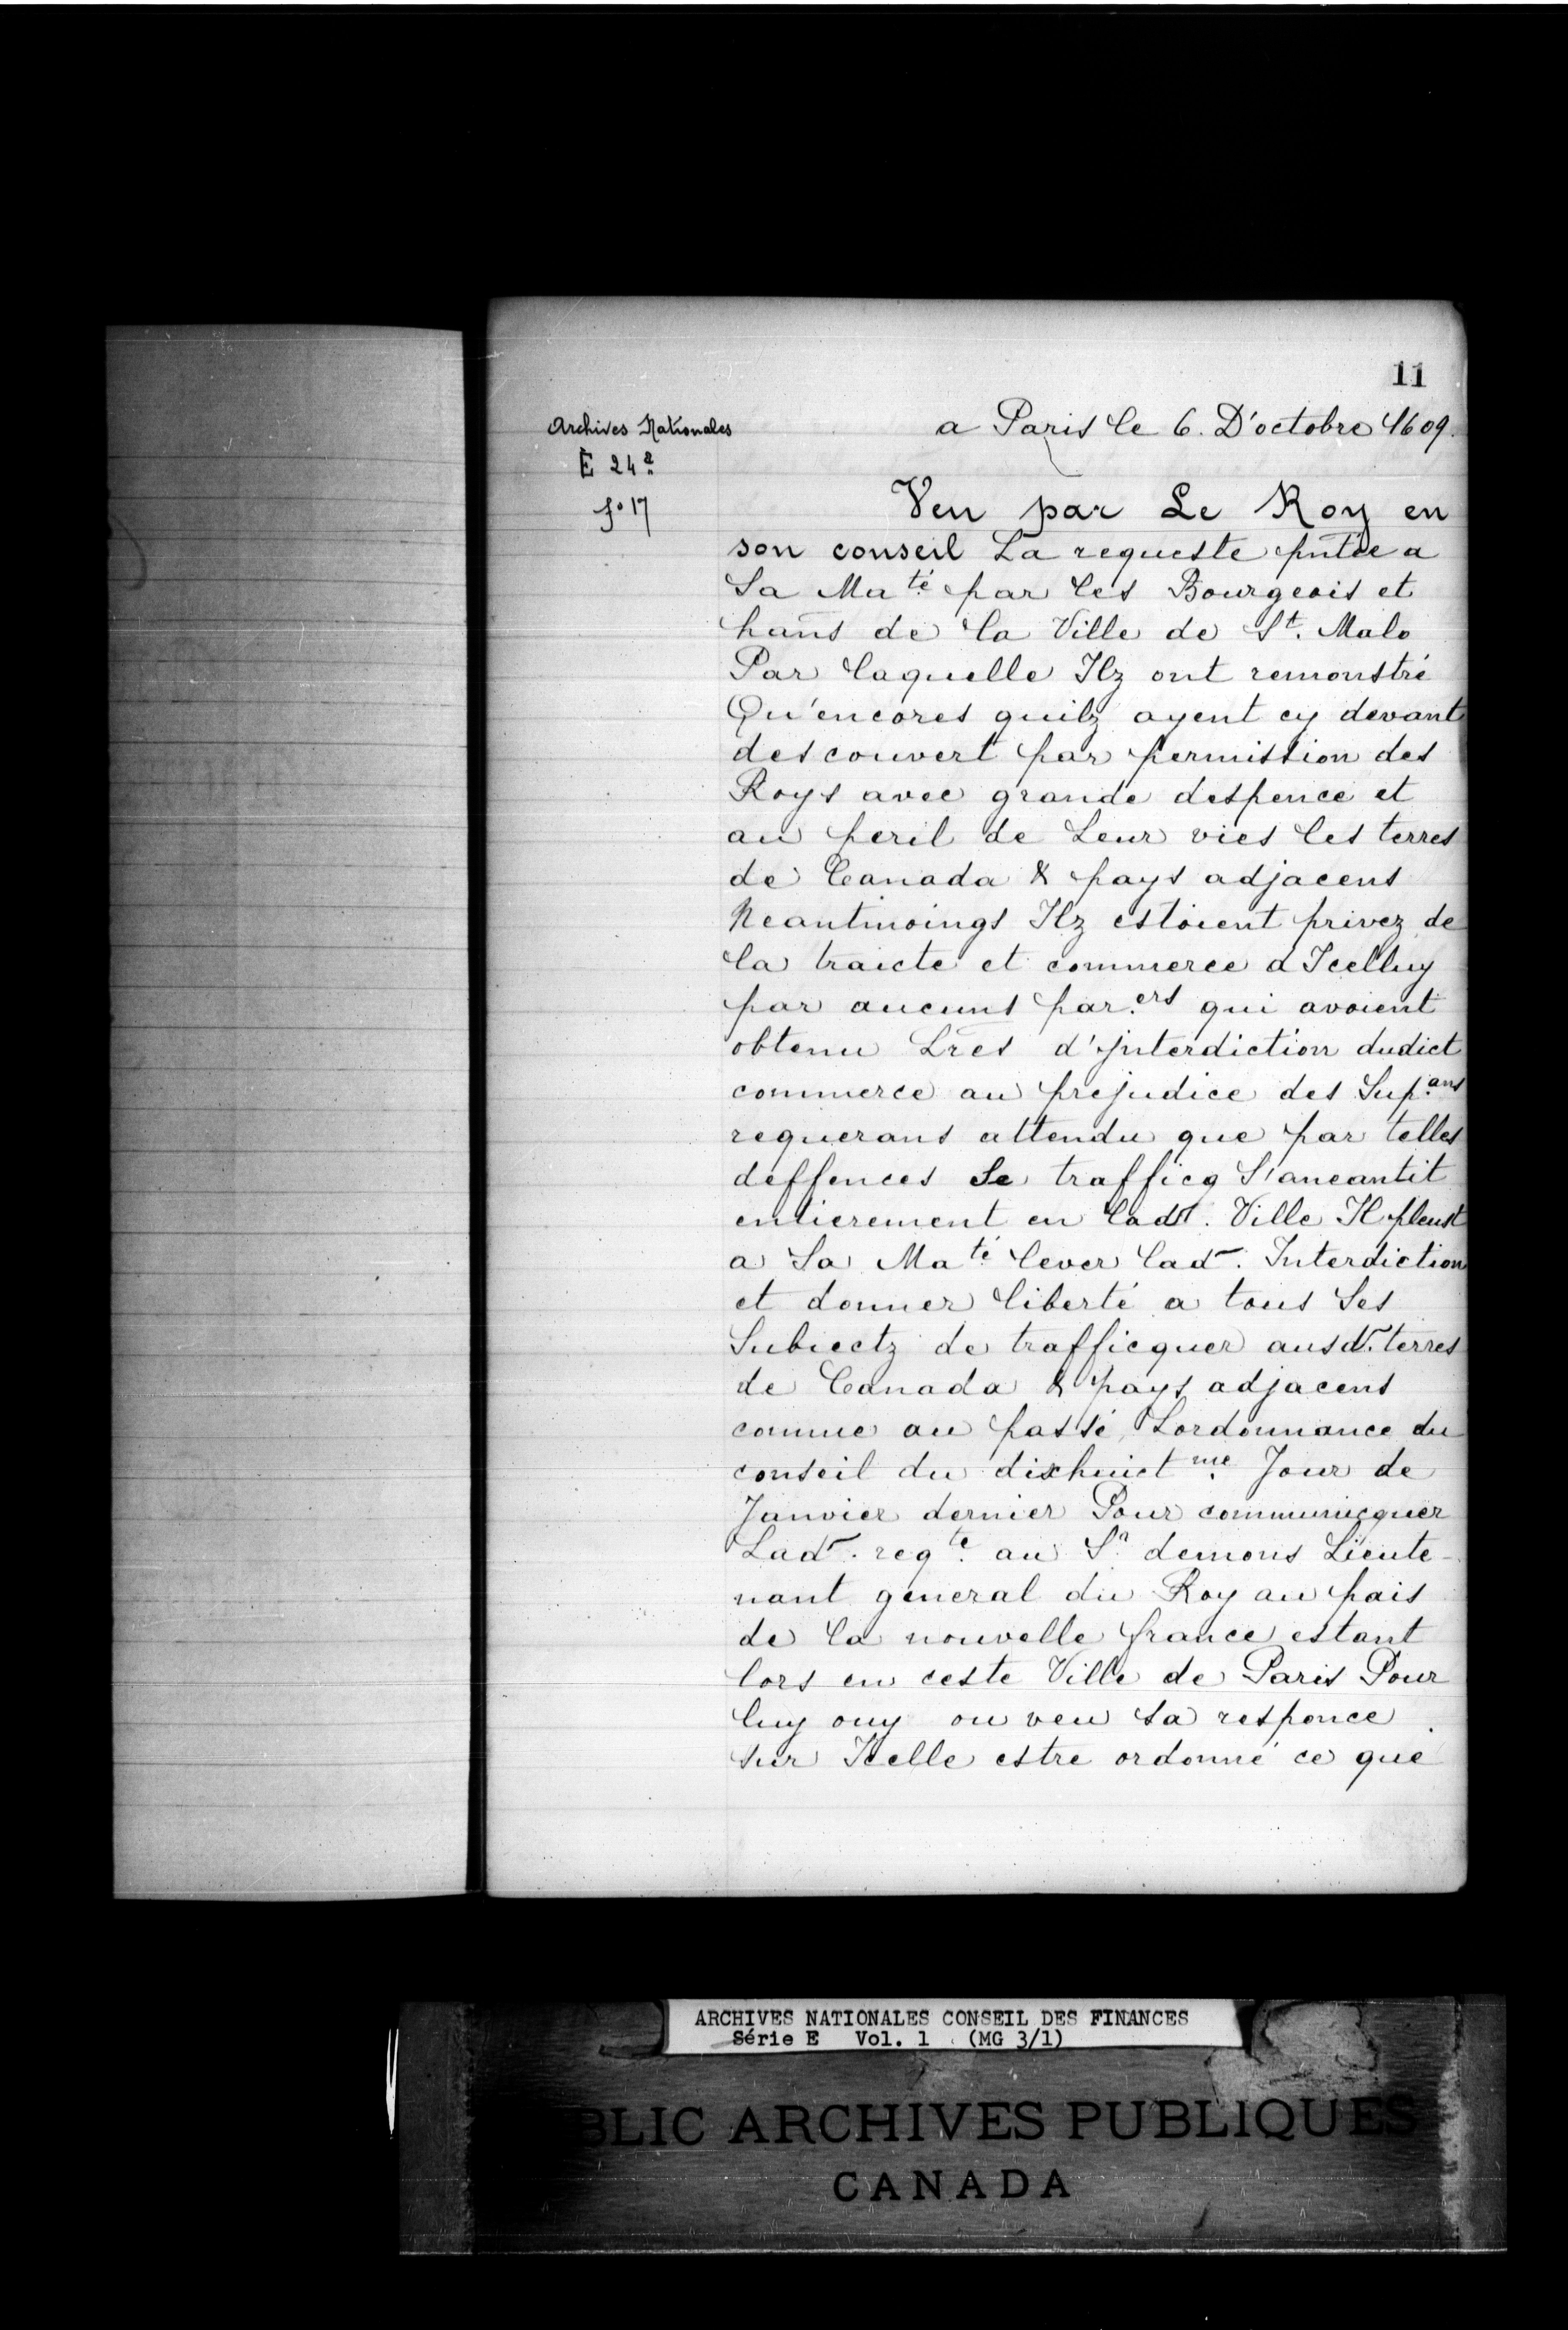 11
Archives Nationales
E 24ª
fº 17
a Paris le 6. D'octobre 1609.
Veu par Le Roy en
son conseil La requeste pn̄tée a
Sa Ma té par les Bourgeois et
han̄s de la Ville de St. Malo
Par laquelle Ilz ont remonstré
Qu'encores quilz ayent cy devant
descouvert par permission des
Roys avec grande despence et
au peril de Leur vies les terres
de Canada & pays adjacens
Neantmoings Ilz estoient privez de
la traicte et commerce d Icelluy
par aucuns par.ers qui avoient
obtenu Lr̄es d'Jnterdiction dudict
commerce au prejudice des Sup.ans
requerans attendu que par telles
deffences Le trafficq S'aneantit
entierement en lad. Ville Il pleust
a Sa Ma té lever lad. Interdiction
et donner liberté a tous Ses
Subiectz de trafficquer ausd. terres
de Canada & pays adjacens
comme au passé, Lordonnance du
conseil du dixhuict me Jour de
Janvier dernier Pour communicquer
Lad. reqte. au Sr demons Lieute-
nant general du Roy au pais
de la nouvelle france estant
lors en ceste Ville de Paris Pour
luy ouy ou veu sa responce
sur Icelle estre ordonné ce que
ARCHIVES NATIONALES CONSEIL DES FINANCES
Série E Vol. 1 (MG 3/1)
BLIC ARCHIVES PUBLIQUES
CANADA